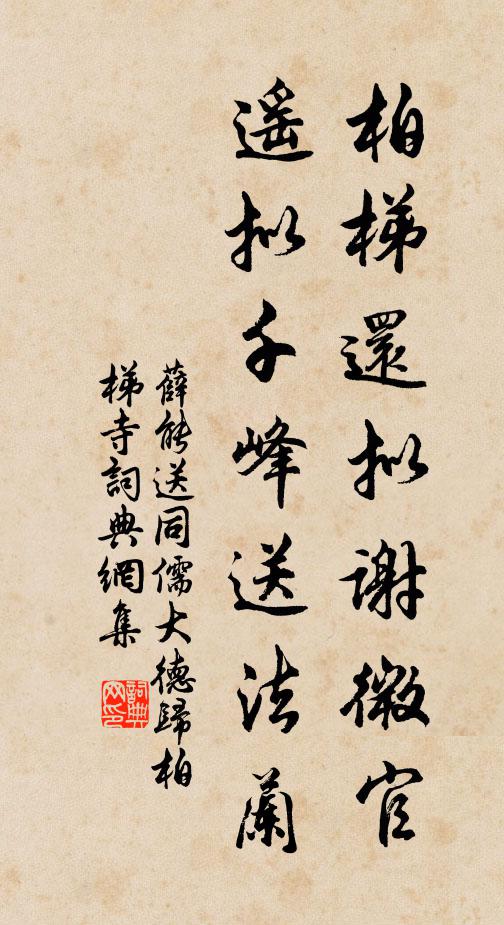 柏梯還拟謝微官
遥拟千峰送法蘭
薛能送同儒大德歸柏
梯寺詞典網集
詞典
网印